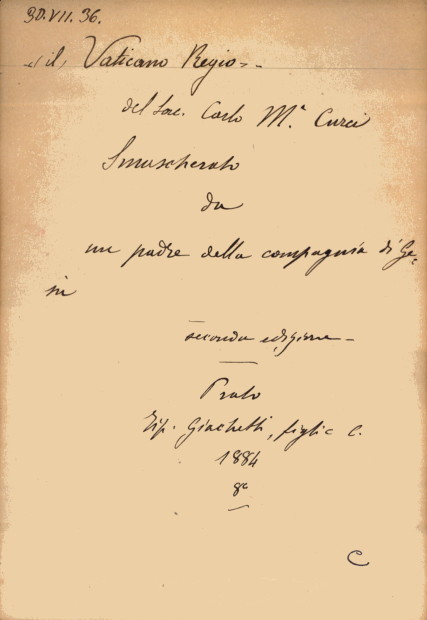 30.VII.36.
"il, Vaticano Regio"
del Sac. Carlo M.ª Curci
Smascherato
da
un padre della compagnia di Ge=
sù
seconda edizione
Prato
Tip. Giachetti, figlio e C.
1884
8º
C